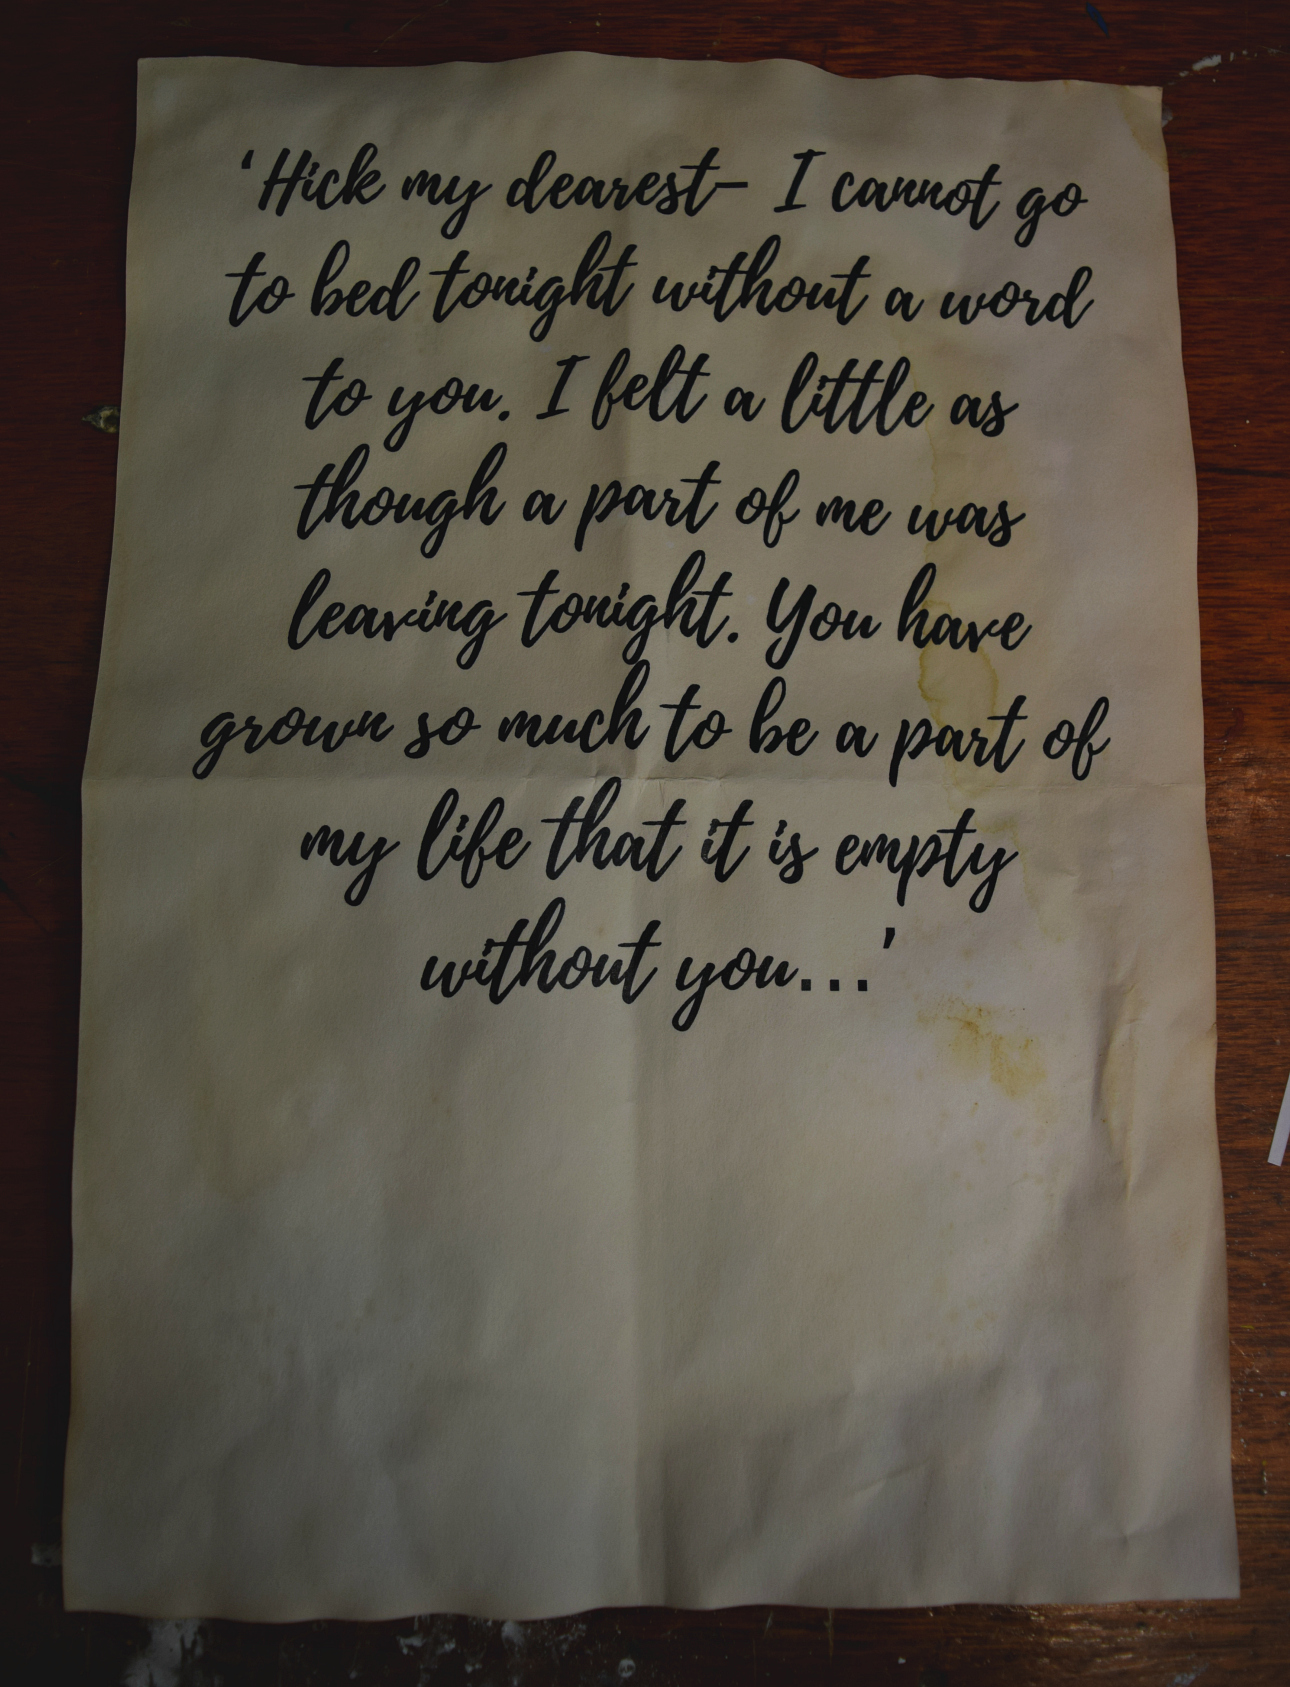 ‘Hick my dearest– I cannot go
to bed tonight without a word
to you. I felt a little as
though a part of me was
leaving tonight. You have
grown so much to be a part of
my life that it is empty
without you...’